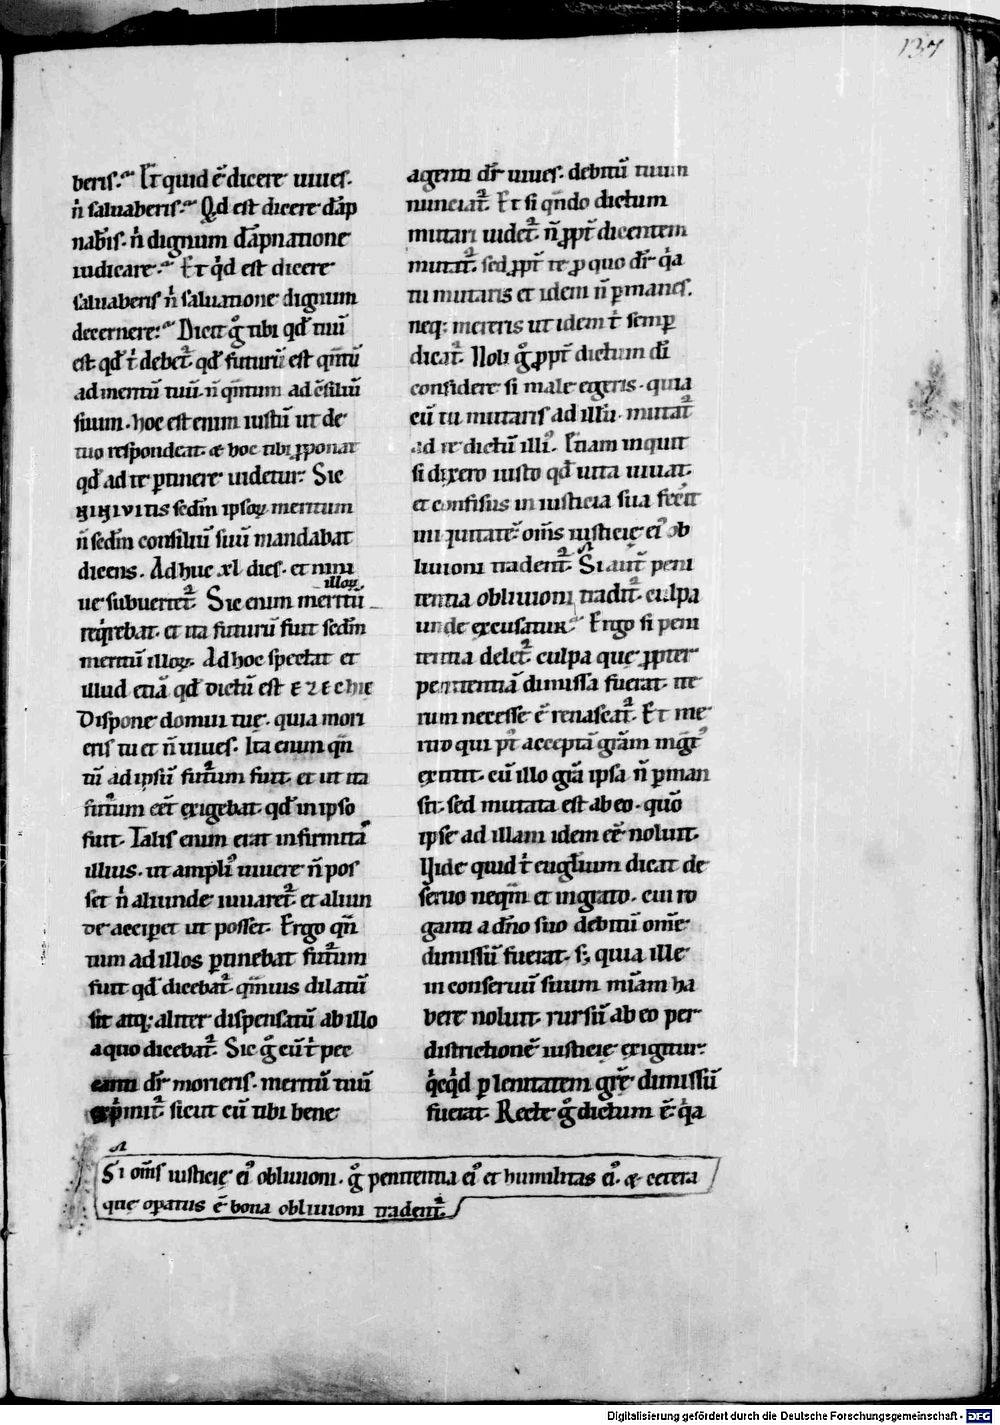 137
beris.᷒ Et quid ē dicere uiues.
n̄ saluaberis.᷒ Qd est dicere dāp
nab̄is. n̄ dignum dāpnatione
iudicare.᷒ Et qͥd est dicere
saluaberis nͥ saluatione dignum
decernere.᷒ Dicit gͦ tibi qd̄ tuū
est qd̄ tͥ debet᷑. qd̄ futurū est qm̄tū
ad meritū tuū. n̄ qm̄tum ad ɔ̄siliū
suum. hoc est enim iustū ut de
tuo respondeat. & hoc tibi ꝓponat
qd̄ ad te ꝑtinere uidetur. Sic
NINIVITIS sedm̄ ipsoꝝ meritum
n̄ sedm̄ consiliū suū mandabat
dicens. Adhuc .xl. dies. et nini
ue subuertet᷑. Sic enim meritū
illoꝝ.
reqͥrebat. et ita futurū fuit sedm̄
meritū illoꝝ. Ad hoc spectat et
illud etiā qd̄ dictū est EZECHIE
Dispone domui tuę. quia mori
eris tu et n̄ uiues. Ita enim qn̄
tū ad ipsū futᷓum fuit. et ut ita
futᷓum eēt exigebat. qd̄ in ipso
fuit. Talis enim erat infirmitas
illius. ut ampliꝰ uiuere n̄ pos
set nͥ aliunde iuuaret᷑. et aliun
de acciperet ut posset. Ergo qn̄
tum ad illos ꝑtinebat futᷓum
fuit qd̄ dicebat᷑. qm̄uis dilatū
sit atq; aliter dispensatū ab illo
a quo dicebat᷑. Sic gͦ cū tͥ pec
canti dr̄ morieris. meritū tuū
expͥmit᷑. sicut cū tibi bene
agenti dr̄ uiues. debitū tuum
nunciat᷑. Et si qn̄do dictum
mutari uidet᷑. n̄ ꝓpt̄ dicentem
mutat᷑. sed ꝓpt̄ te ꝓ quo dr̄. qͥa
tu mutaris et idem n̄ ꝑmanes.
neq; mereris ut idem tͥ semꝑ
dicat᷑. Noli gͦ ꝓpt̄ dictum dī
considere si male egeris. quia
cū tu mutaris ad illū. mutat᷑
ad te dictū illiꝰ. Etiam inquit
si dixero iusto qd̄ uita uiuat.
et confisus in iusticia sua fec̄it
iniquitatē. om̄s iusticię eiꝰ ob
liuioni tradent᷑. Si aut̄ peni
tentia obliuioni tradit᷑. culpa
unde excusatur᷒ Ergo si peni
tentia delet᷑. culpa que ꝓpter
penitentiā dimissa fuerat. ite
rum necesse ē renascat᷑. Et me
rito qui pꝰ acceptā gr̄am ingᷓtꝰ
extitit. cū illo gr̄a ipsa n̄ ꝑman
sit. sed mutata est ab eo. quō
ipse ad illam idem eē noluit.
Uide quid tͥ euglīum dicat de
seruo neqm̄ et ingrato. cui ro
ganti a dn̄o suo debitū om̄e
dimissū fuerat. s; quia ille
in conseruū suum mīam ha
bere noluit. rursū ab eo per
districtionē iusticię exigitur.
qͥcqͥd ꝑ lenitatem gr̄ę dimissū
fuerat. Recte gͦ dictum ē. qͥa
Si om̄s iusticię eiꝰ obliuioni. gͦ penitentia eiꝰ et humilitas eiꝰ. & cetera
que oꝑatus ē bona obliuioni tradent᷑.
Digitalisierung gefördert durch die Deutsche Forschungsgemeinschaft - DFG